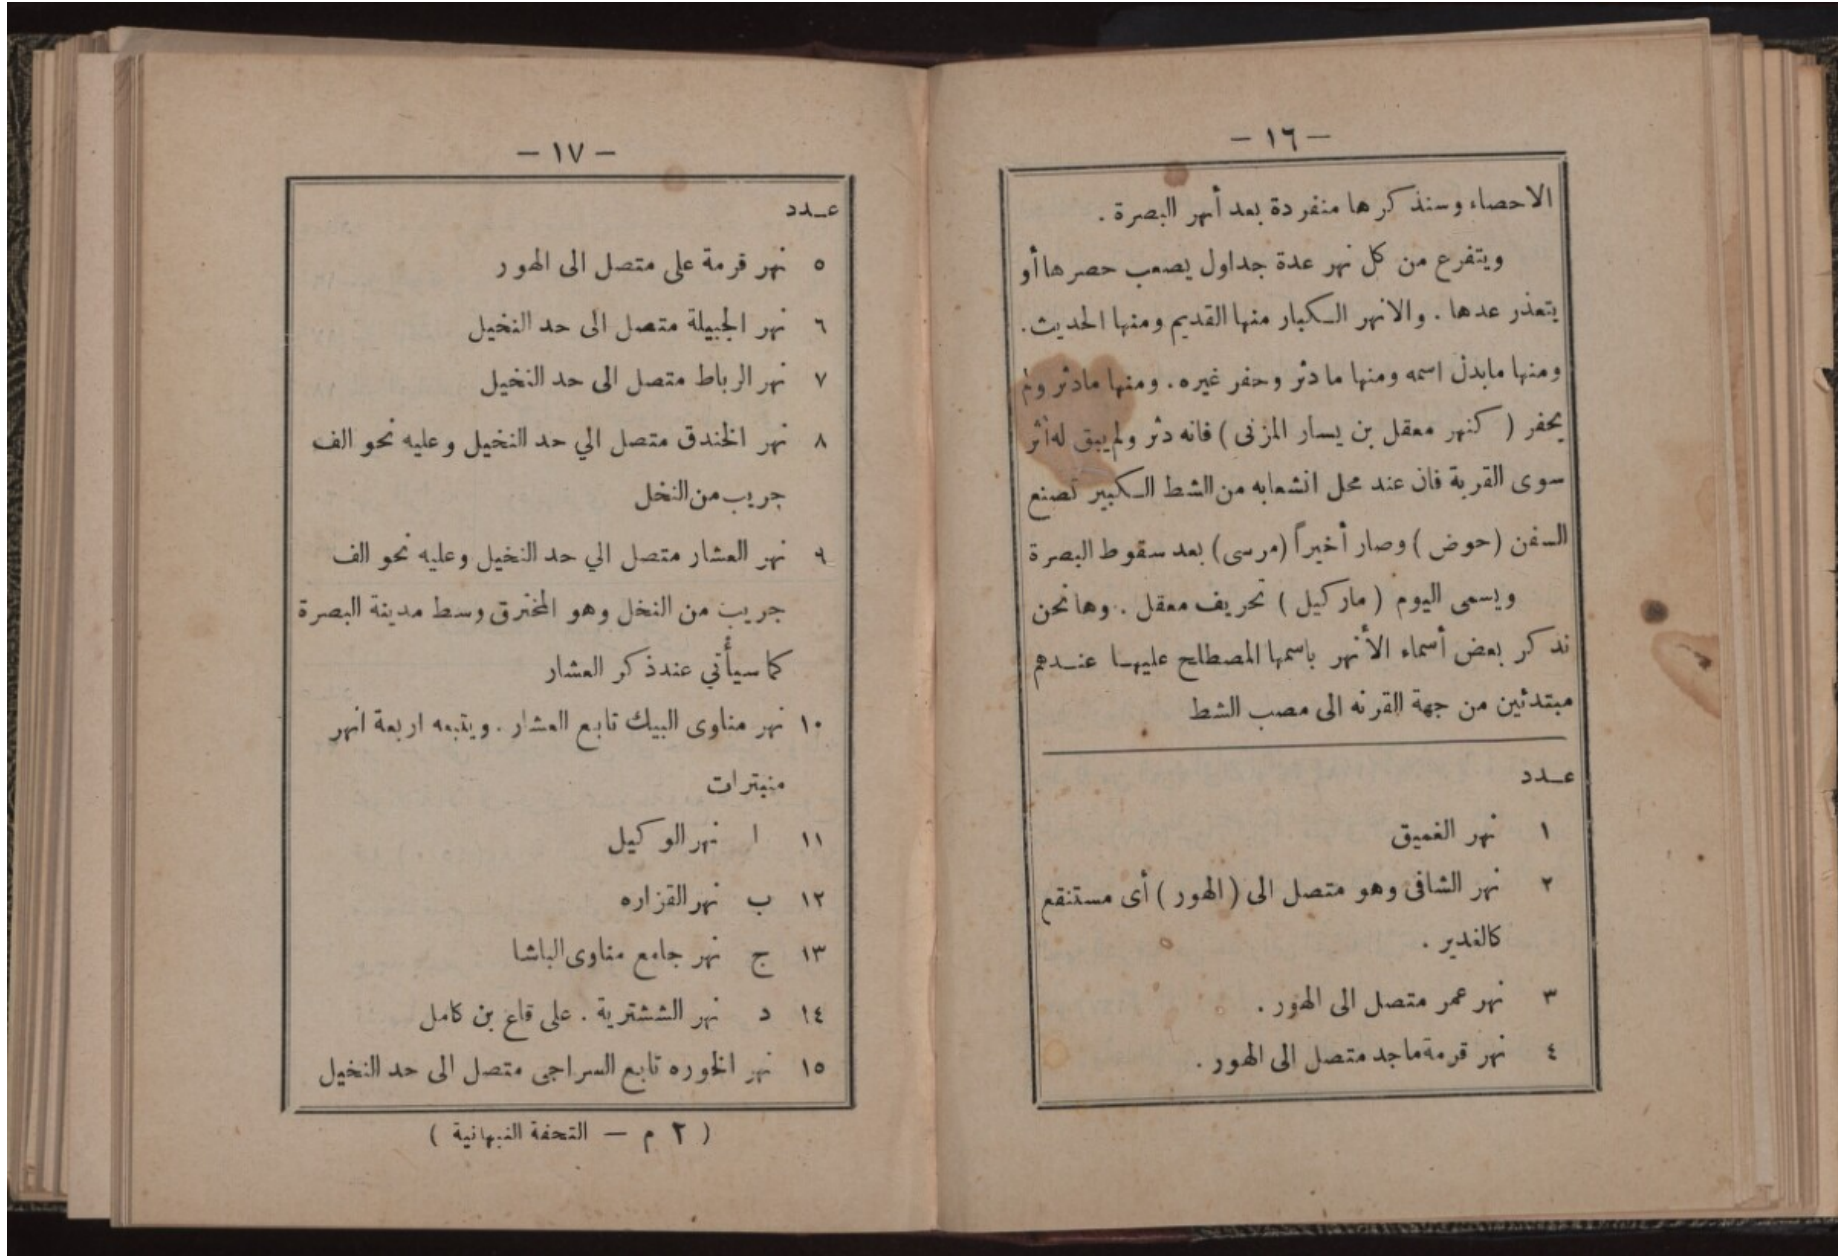 — ١٦ —
الاحصاء وسنذكرها منفردة بعد أنهر البصرة .
ويتفرع من كل نهر عدة جداول يصعب حصرها أو
يتعذر عدها . والانهر الكبار منها القديم ومنها الحديث .
ومنها مابدل اسمه ومنها ما دثر وحفر غيره . ومنها مادثر ولم
يحفر ( كنهر معقل بن يسار المزنى ) فانه دثر ولم يبق له أثر
سوى القرية فان عند محل انشعابه من الشط الكبير تصنع
السفن ( حوض ) وصار أخيراً ( مرسى ) بعد سقوط البصرة
ويسمى اليوم ( ماركيل ) تحريف معقل . وها نحن
نذكر بعض أسماء الأنهر باسمها المصطلح عليها عندهم
مبتدئين من جهة القرنه الى مصب الشط
عدد
١ نهر الغميق
٢ نهر الشافى وهو متصل الى ( الهور ) أى مستنقع
كالغدير .
٣ نهر عمر متصل الى الهور .
٤ نهر قرمة ماجد متصل الى الهور .
— ١٧ —
عدد
٥ نهر قرمة على متصل الى الهور
٦ نهر الجبيلة متصل الى حد النخيل
٧ نهر الرباط متصل الى حد النخيل
٨ نهر الخندق متصل الي حد النخيل وعليه نحو الف
جريب من النخل
٩ نهر العشار متصل الي حد النخيل وعليه نحو الف
جريب من النخل وهو المخترق وسط مدينة البصرة
كما سيأتي عند ذكر العشار
١٠ نهر مناوى البيك تابع العشار . ويتبعه اربعة انهر
منيترات
١١ ا نهر الوكيل
١٢ ب نهر القزاره
١٣ ج نهر جامع مناوى الباشا
١٤ د نهر الششترية . على قاع بن كامل
١٥ نهر الخوره تابع السراجى متصل الى حد النخيل
( ٢ م — التحفة النبهانية )